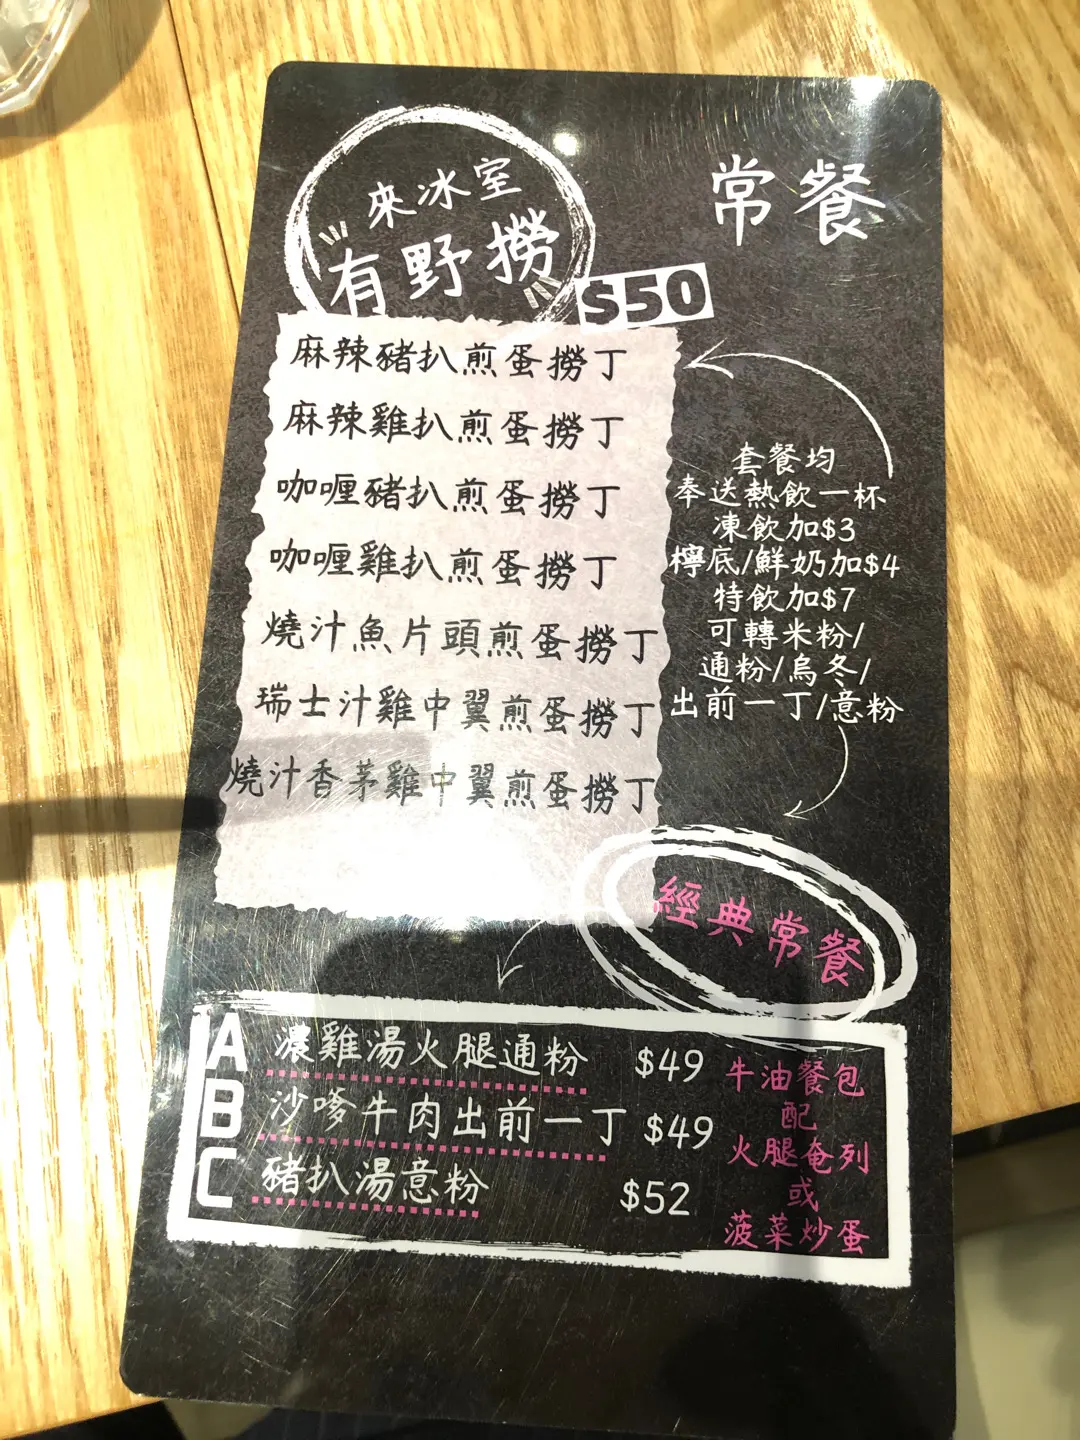 來冰室
有野撈
常餐
$50
麻辣豬扒煎蛋撈丁
麻辣雞扒煎蛋撈丁
咖喱豬扒煎蛋撈丁
咖喱雞扒煎蛋撈丁
燒汁魚片頭煎蛋撈丁
瑞士汁雞中翼煎蛋撈丁
燒汁香茅雞中翼煎蛋撈丁
套餐均
奉送熱飲一杯
凍飲加$3
檸底/鮮奶加$4
特飲加$7
可轉米粉/
通粉/烏冬/
出前一丁/意粉
經典常餐
A 濃雞湯火腿通粉 $49
B 沙嗲牛肉出前一丁 $49
C 豬扒湯意粉 $52
牛油餐包
配
火腿奄列
或
菠菜炒蛋